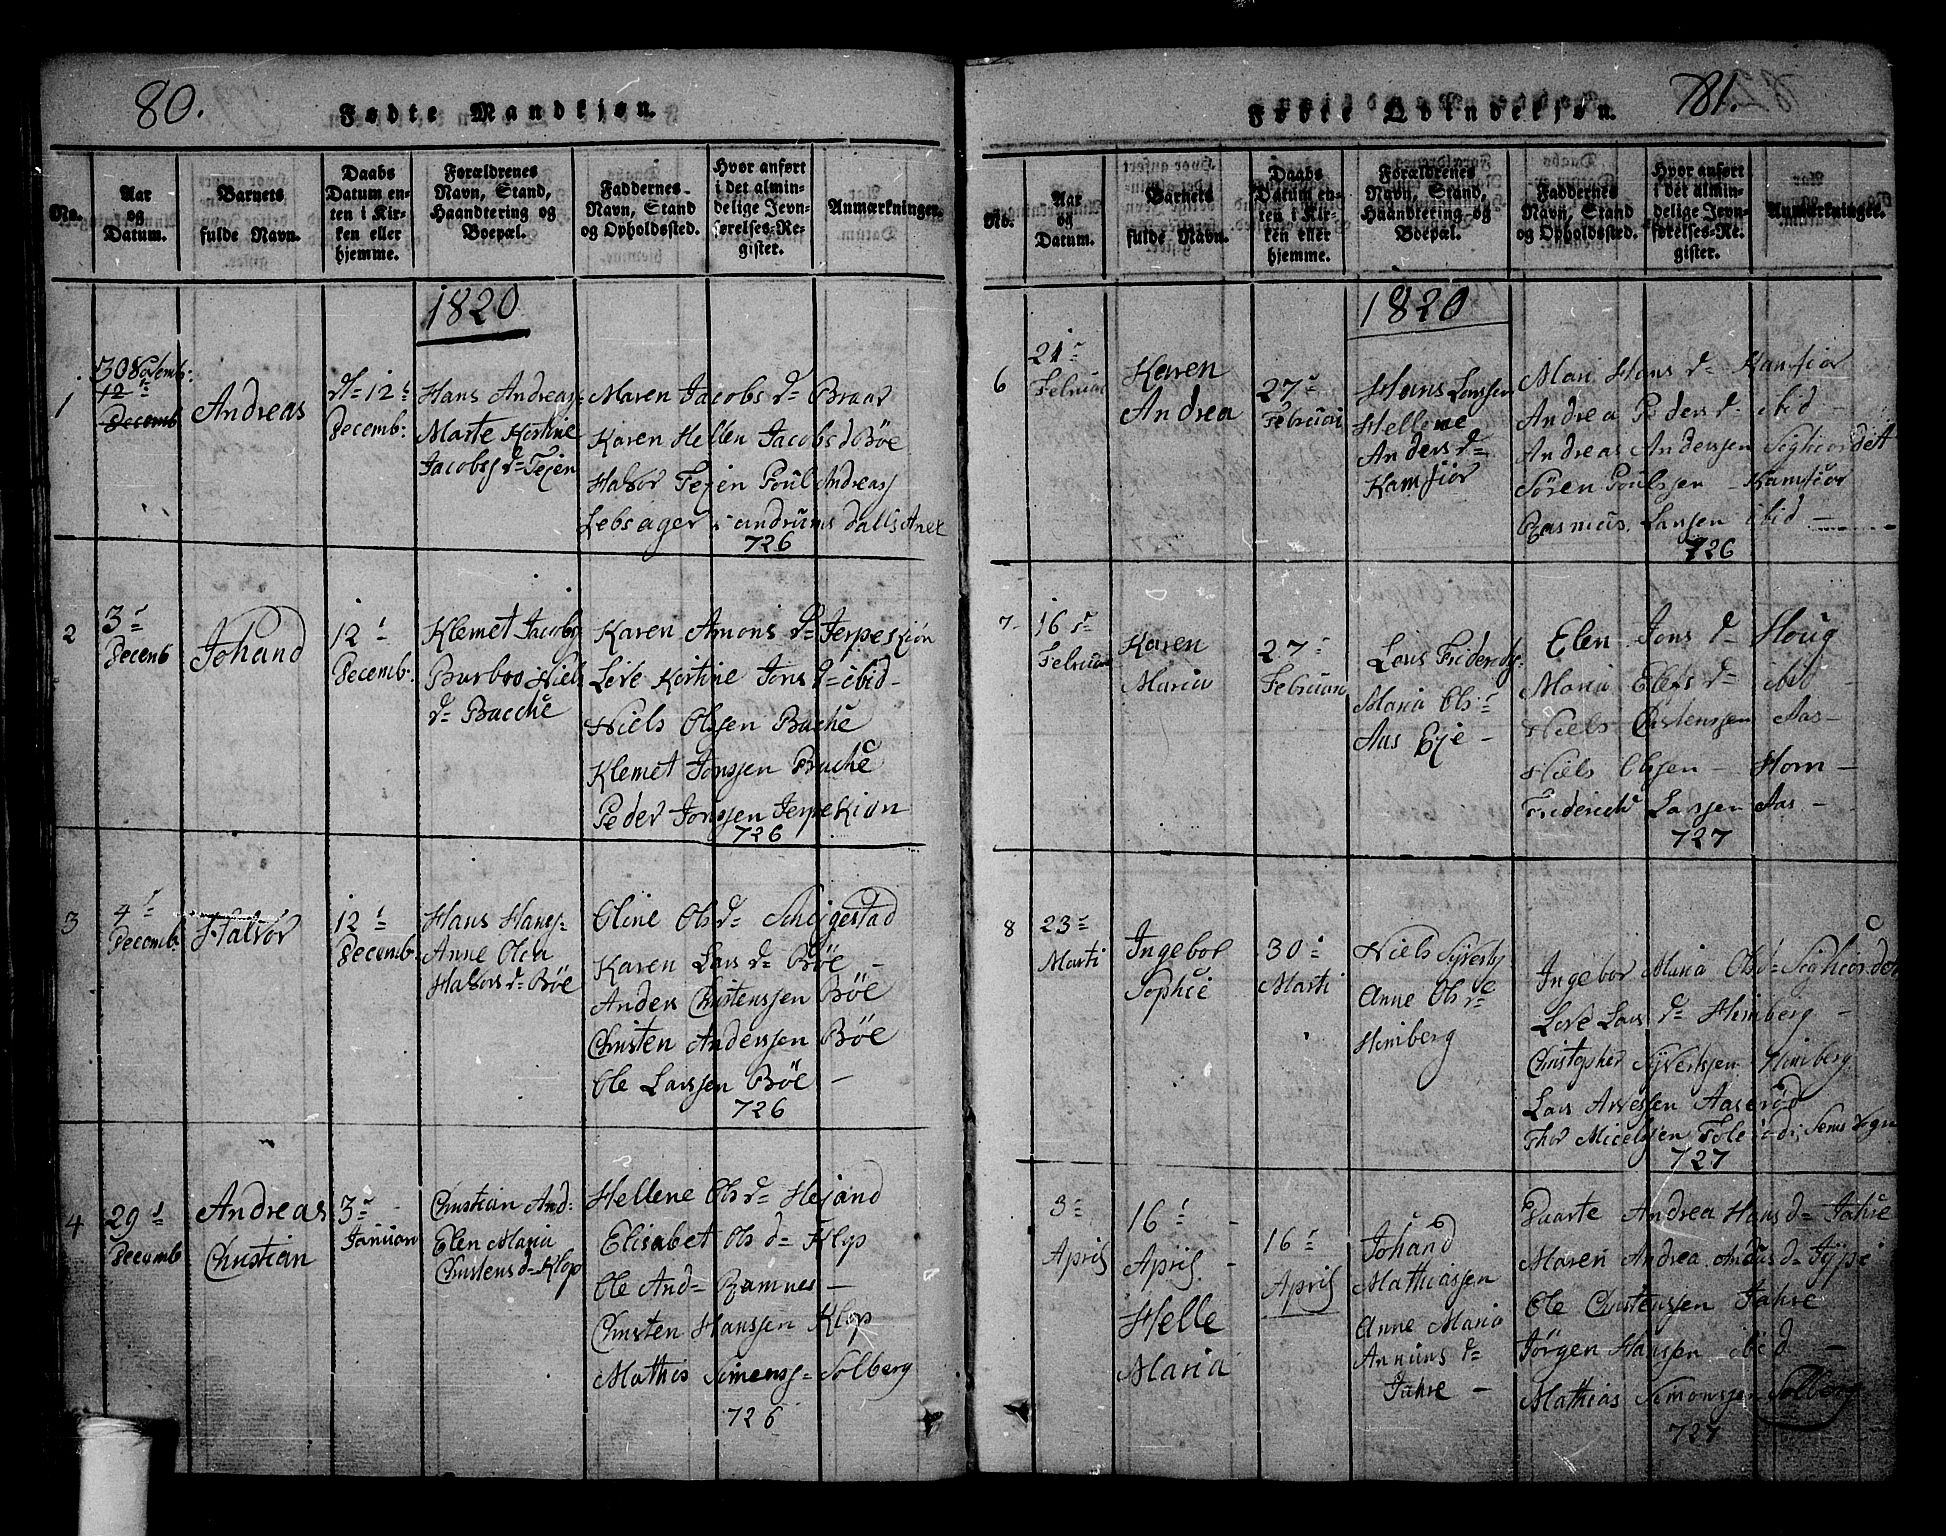 80.
Fødte Mandkjøn.
No.
Aar
og
Datum.
Barnets
fulde Navn.
Daabs
Datum en-
ten i Kir-
ken eller
hjemme.
Forældrenes
Navn, Stand,
Haandtering og
Boepæl.
Faddernes
Navn, Stand
og Opholdssted.
Hvor anført
i det almin-
delige Jevn-
førelses-Re-
gister.
Anmærkninger.
1820
1
30
12
Decemb
Andreas
12
Decemb:
Hans Andreas
Marte Kirstine
Jacobs d Tejen
Maren Jacobs d Braar
Karen Hellen Jacobs d Böe
Halvor Tejen Poul Andreas
Lebsager i andrums dalls Anex
726
2
3
Decemb
Johand
12
Decemb:
Klemet Jacobs
Barbro Niels
d Bacche
Karen Amons d Jerpekiön
Live Kirstine Jons d ibid
Niels Olssen Bache
Klemet Jonssen Bache
Peder Jonssen Jerpekion
726
3
4
Decemb
Halvor
12
Decemb:
Hans Hans
Anne Olea
Halvors d Böe
Oline Ols d Schejgestad
Karen Lars d Böe
Anders Christenssen Böe
Christen Anderssen Böe
Ole Larssen Böe
726
4
29
Decemb
Andreas
Christian
3
Januari
Christian And:
Elen Maria
Christens d Klop
Hellene Ols d Hejand
Elisabet Ols d Klop
Ole And Ramnes
Christen Hanssen Klop
Mathis Simens Solberg
726
81.
Fødte Qvindekjøn.
No.
Aar
og
Datum.
Barnets
fulde Navn.
Daabs
Datum en-
ten i Kir-
ken eller
hjemme.
Forældrenes
Navn, Stand,
Haandtering og
Boepæl.
Faddernes
Navn, Stand
og Opholdssted.
Hvor anført
i det almin-
delige Jevn-
førelses-Re-
gister.
Anmærkninger.
1820
6
21
Februar
Karen
Andrea
27
Februari
Hans Larssen
Hellene
Anders d
Kamfior
Mari Hans d Kamfior
Andrea Peders d ibid
Andreas Anderssen
Sören Poulssen Kamfior
Rasmus Larssen ibid
726
7
16
Februar
Karen
Maria
27
Februari
Lars Friderichs
Maria Ols
Aas Eje
Elen Jons d Houg
Maria Elefs d ibd
Niels Christenssen Aas
Niels Olssen Horn
Friderich Larssen Aas
727
8
23
Marti
Ingebor
Sophie
30
Marti
Niels Syvers
Anne Ols d
Himberg
Ingebor Maria Ols d
Live Lars d Himberg
Christopher Syvertssen Himberg
Lars Arvessen Aaserød
Thor Micelssen
727
3
April
16
April
Helle
Maria
16
April
Johand
Mathiassen
Anne Maria
d
Jahre
Maarte Andrea Hans d Jahre
Maren Andrea d
Ole Christenssen Jahre
Jörgen Hanssen ibid
Mathias Simonssen Solberg
727